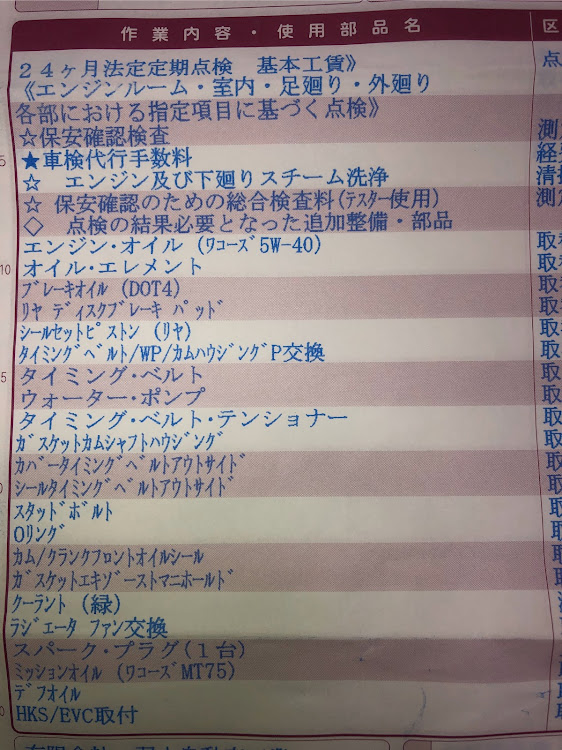 作業内容・使用部品名 区
24ヶ月法定定期点検 基本工賃》 点
《エンジンルーム・室内・足廻り・外廻り
各部における指定項目に基づく点検》
☆保安確認検査 測
5 ★車検代行手数料 経
☆ エンジン及び下廻りスチーム洗浄 清
☆ 保安確認のための総合検査料(ﾃｽﾀｰ使用) 測
◇ 点検の結果必要となった追加整備・部品
エンジン・オイル (ﾜｺｰｽﾞ5W-40) 取
10 オイル・エレメント 取
ﾌﾞﾚｰｷｵｲﾙ (DOT4) 取
ﾘﾔ ﾃﾞｨｽｸﾌﾞﾚｰｷ ﾊﾟｯﾄﾞ 取
ｼｰﾙｾｯﾄﾋﾟｽﾄﾝ (ﾘﾔ) 取
ﾀｲﾐﾝｸﾞﾍﾞﾙﾄ/WP/ｶﾑﾊｳｼﾞﾝｸﾞP交換 取
5 タイミング・ベルト 取
ウォーター・ポンプ 取
タイミング・ベルト・テンショナー 取
ｶﾞｽｹｯﾄｶﾑｼｬﾌﾄﾊｳｼﾞﾝｸﾞ 取
ｶﾊﾞｰﾀｲﾐﾝｸﾞﾍﾞﾙﾄｱｳﾄｻｲﾄﾞ 取
0 ｼｰﾙﾀｲﾐﾝｸﾞﾍﾞﾙﾄｱｳﾄｻｲﾄﾞ 取
ｽﾀｯﾄﾞﾎﾞﾙﾄ 取
Oﾘﾝｸﾞ 取
ｶﾑ/ｸﾗﾝｸﾌﾛﾝﾄｵｲﾙｼｰﾙ 取
ｶﾞｽｹｯﾄｴｷｿﾞｰｽﾄﾏﾆﾎｰﾙﾄﾞ 取
ｸｰﾗﾝﾄ (緑)
ﾗｼﾞｴｰﾀ ﾌｧﾝ交換
スパーク・プラグ(1台)
ﾐｯｼｮﾝｵｲﾙ (ﾜｺｰｽﾞMT75)
ﾃﾞﾌｵｲﾙ
0 HKS/EVC取付